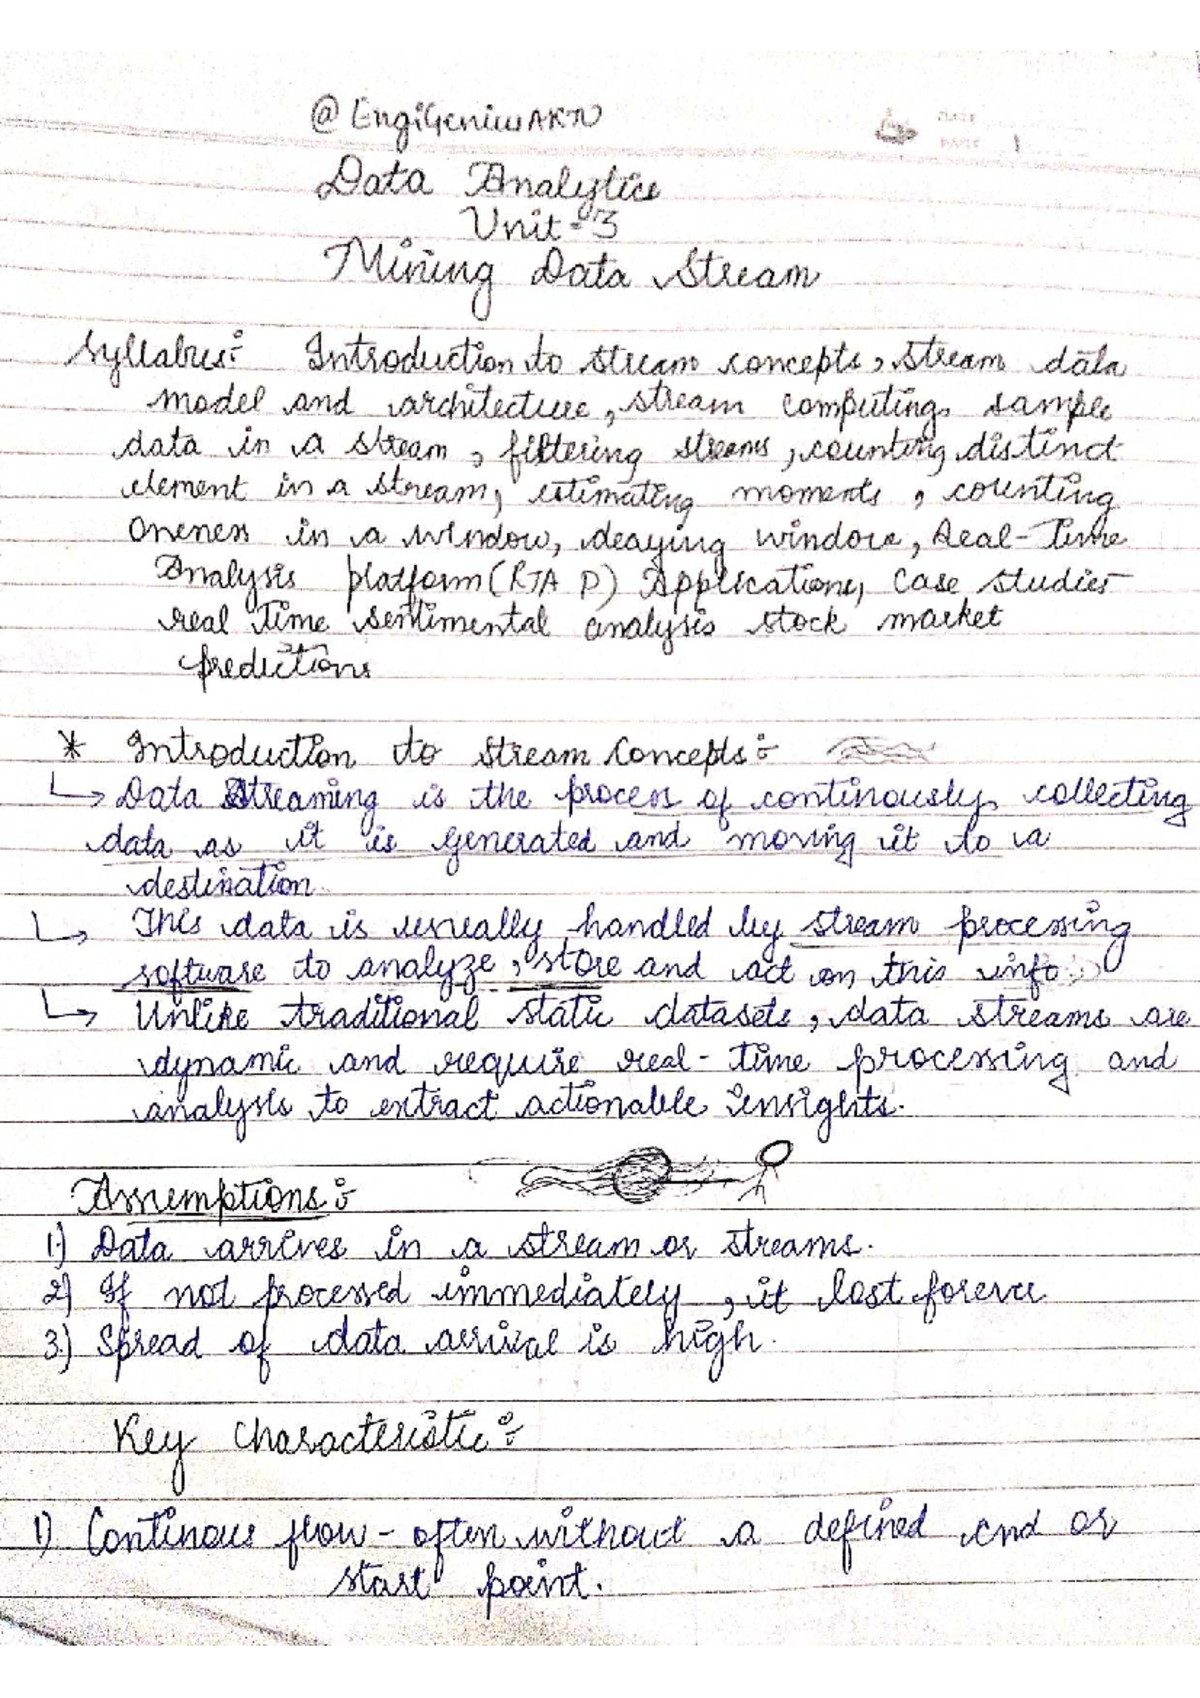 @EngiGeniusAKTU
Data Analytics
Unit-3
Mining Data Stream
Syllabus:- Introduction to stream concepts, stream data
model and architecture, stream computing, sample
data in a stream, filtering streams, counting distinct
element in a stream, estimating moments, counting
Oneness in a window, deaying window, Real-Time
Analysis platform (RTAP) Applications, Case studies
real Time sentimental analysis stock market
predictions
* Introduction to Stream Concepts:-
↳ Data Streaming is the process of continously collecting
data as it is generated and moving it to a
destination.
↳ This data is usually handled by stream processing
software to analyze, store and act on this info.
↳ Unlike traditional static datasets, data streams are
dynamic and require real-time processing and
analysis to extract actionable insights.
Assumptions:-
1.) Data arrives in a stream or streams.
2) If not processed immediately, it lost forever
3.) Spread of data arrival is high.
Key Characteristic:-
1) Continous flow - often without a defined end or
start point.